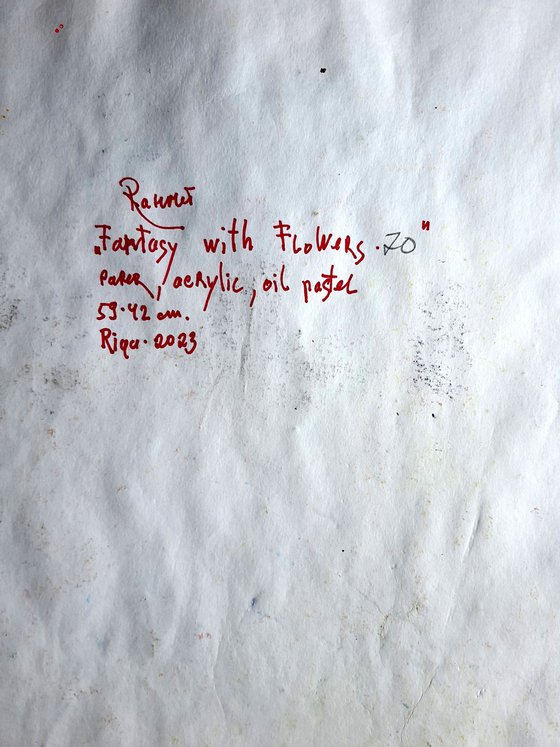 „Fantasy with Flowers. 70"
paper, acrylic, oil pastel
59·42 cm.
Riga· 2023